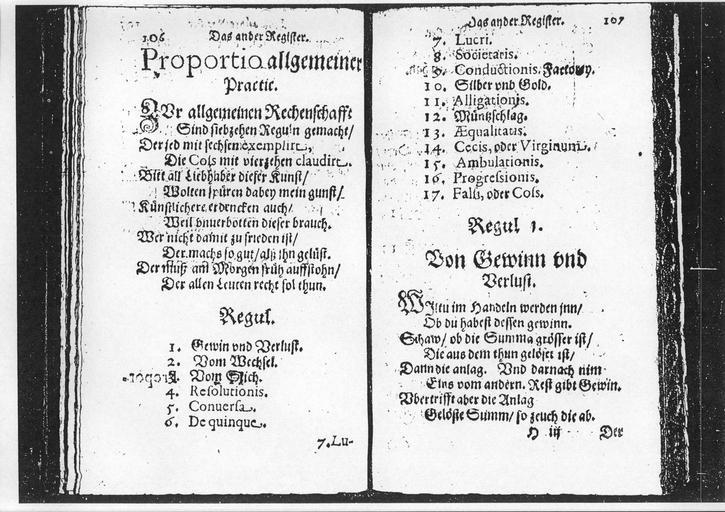 106 Das ander Register.
Proportio allgemeiner
Practic.
ZVr allgemeinen Rechenschafft
Sind siebzehen Reguln gemacht/
Der jed mit sechsen exemplirt,
Die Coss mit vierzehen claudirt.
Bitt all Liebhaber dieser Kunst/
Wolten spüren dabey mein gunst/
Künstlichere erdencken auch/
Weil vnuerbotten dieser brauch.
Wer nicht damit zu frieden ist/
Der machs so gut/ alß ihn gelüst.
Der muß am Morgen früh auffstohn/
Der allen Leuten recht sol thun.
Regul.
1. Gewin vnd Verlust.
2. Vom Wechsel.
3. Vom Stich.
4. Resolutionis.
5. Conuersa.
6. De quinque.
7. Lu-
Das ander Register. 107
7. Lucri.
8. Societatis.
9. Conductionis. Factorey.
10. Silber vnd Gold.
11. Alligationis.
12. Müntzschlag.
13. Æqualitatis.
14. Cecis, oder Virginum.
15. Ambulationis.
16. Progressionis.
17. Falsi, oder Coss.
Regul 1.
Von Gewinn vnd
Verlust.
Wiltu im Handeln werden jnn/
Ob du habest dessen gewinn.
Schaw/ ob die Summa grösser ist/
Die aus dem thun gelöset ist/
Dann die anlag. Vnd darnach nim
Eins vom andern. Rest gibt Gewin.
Vbertrifft aber die Anlag
Gelöste Summ/ so zeuch die ab.
H iij Der